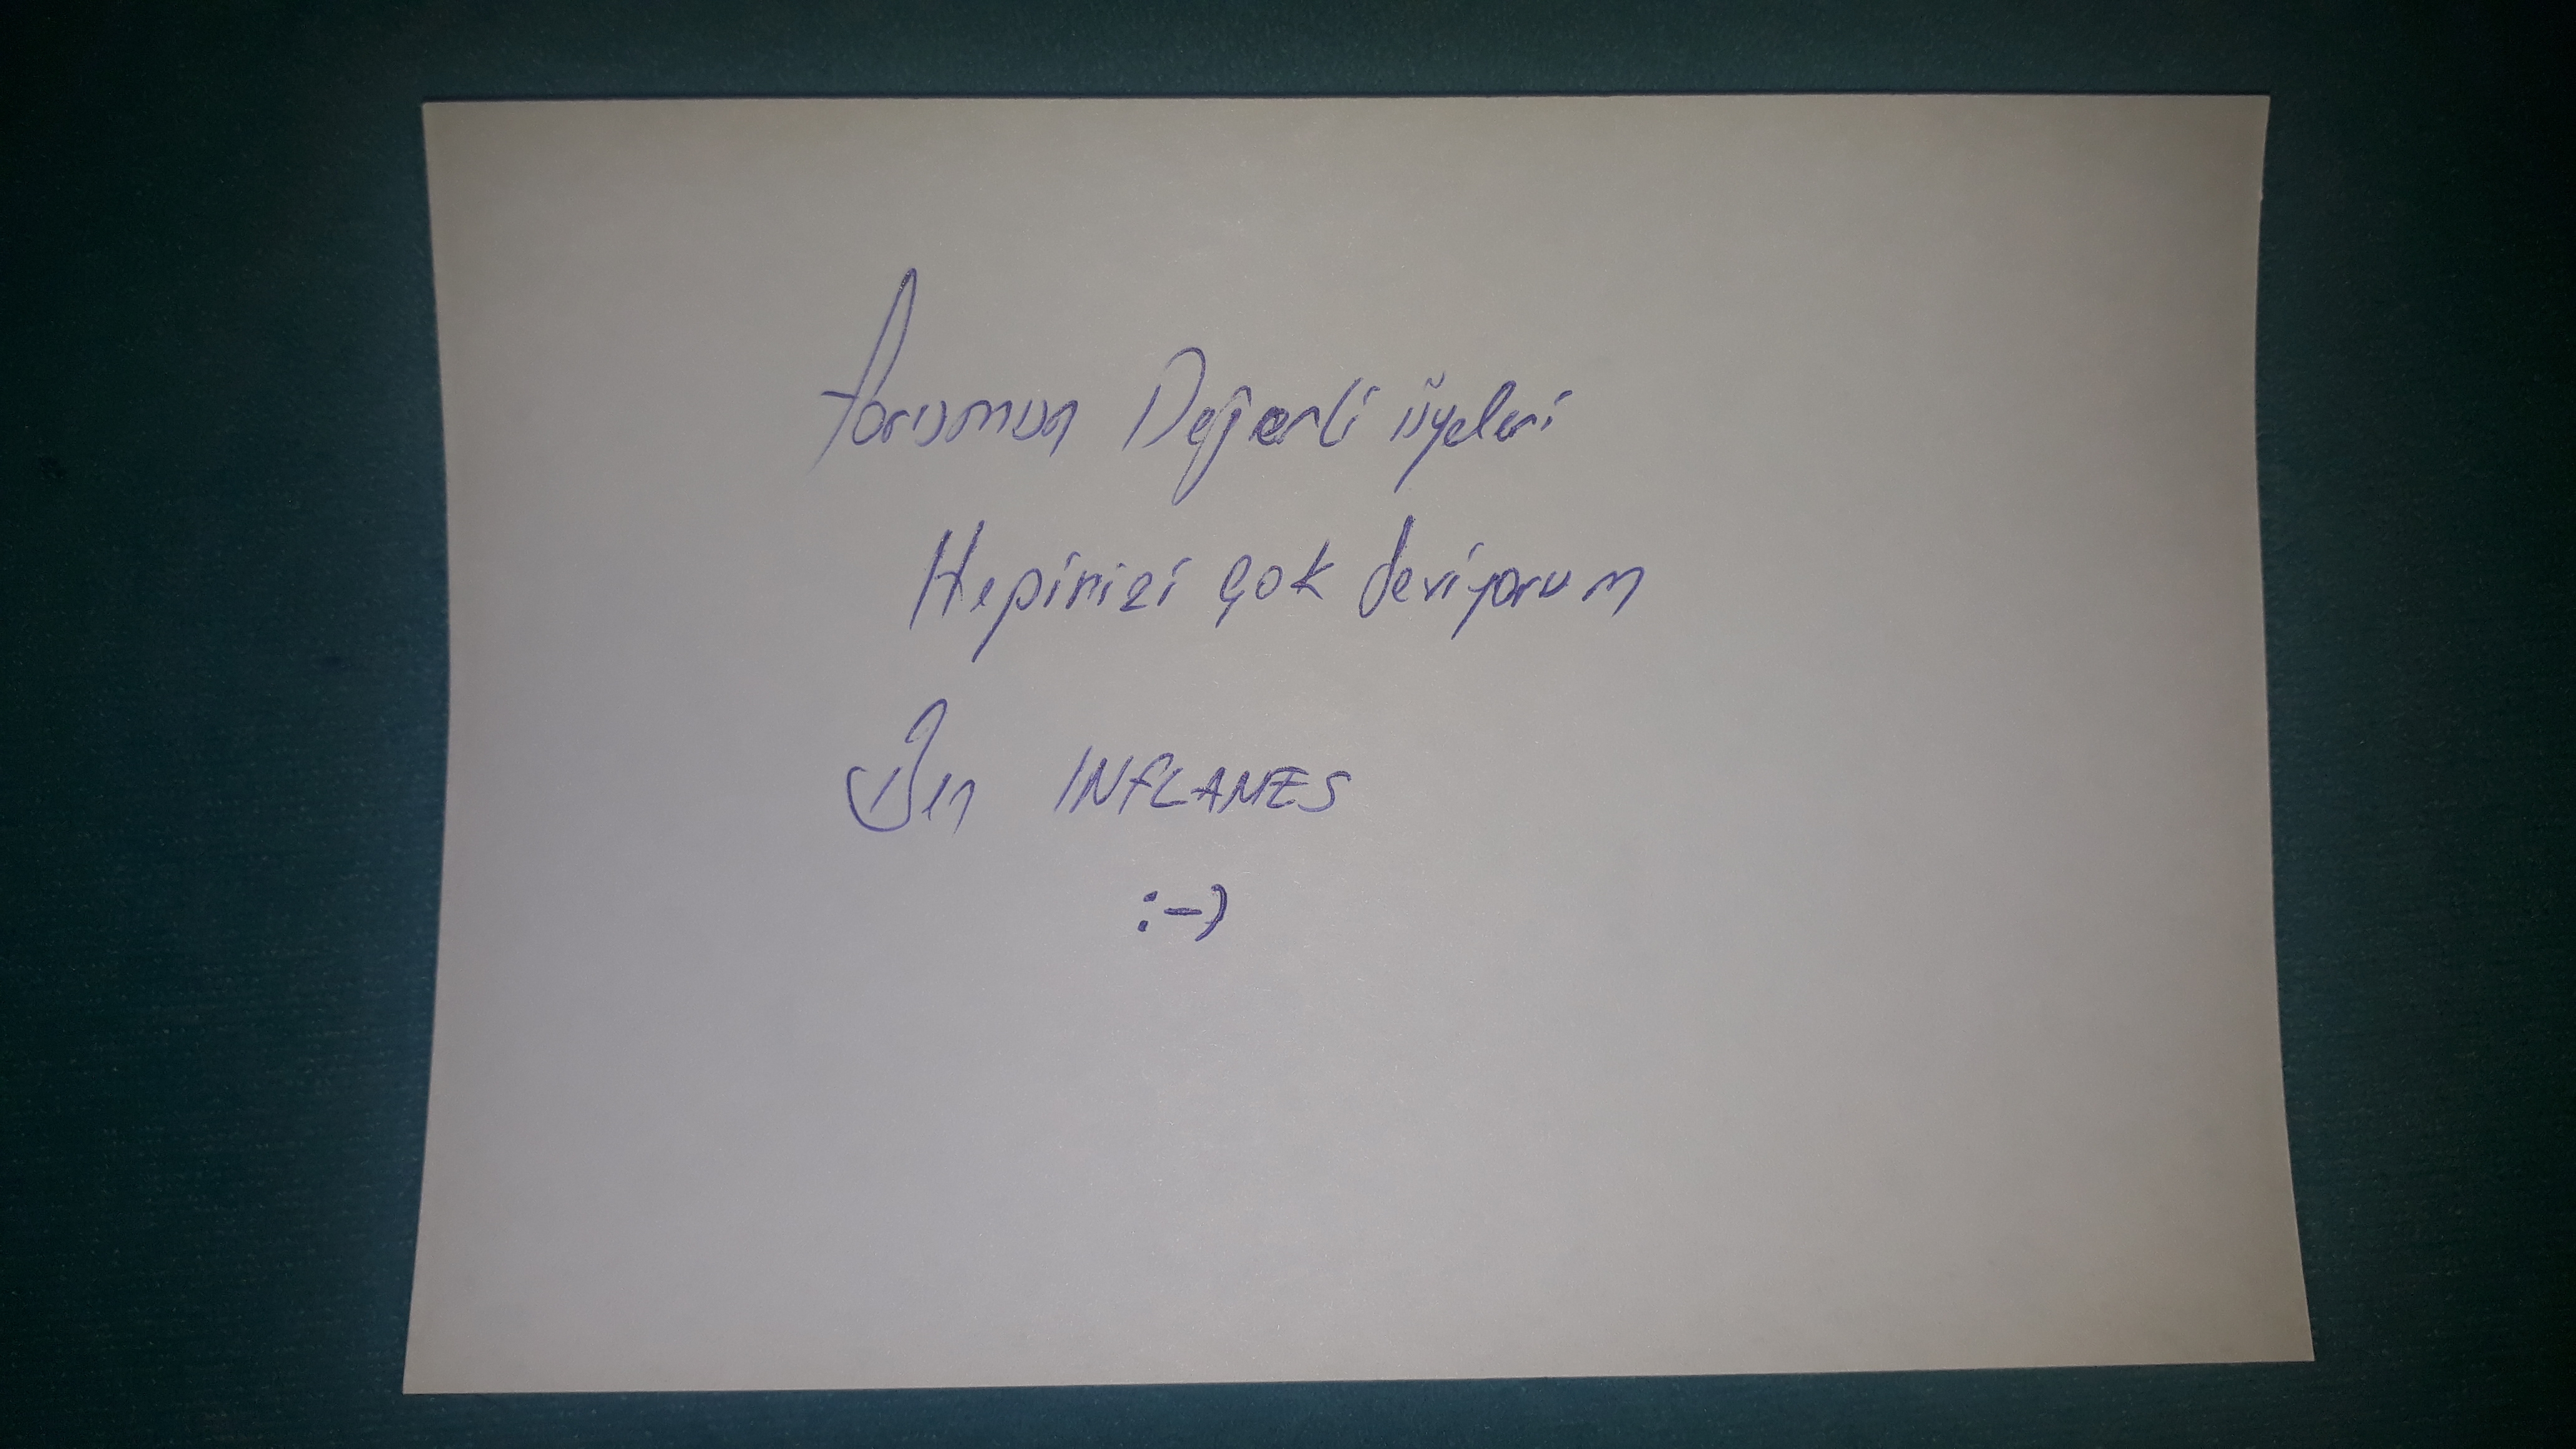 forumun Değerli üyeleri
Hepinizi çok seviyorum
Ben INFLAMES
:-)